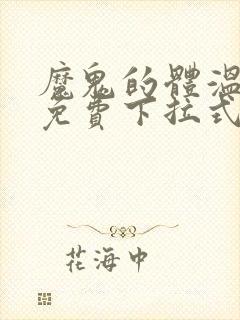 魔鬼的體溫
免費下拉式
花海中